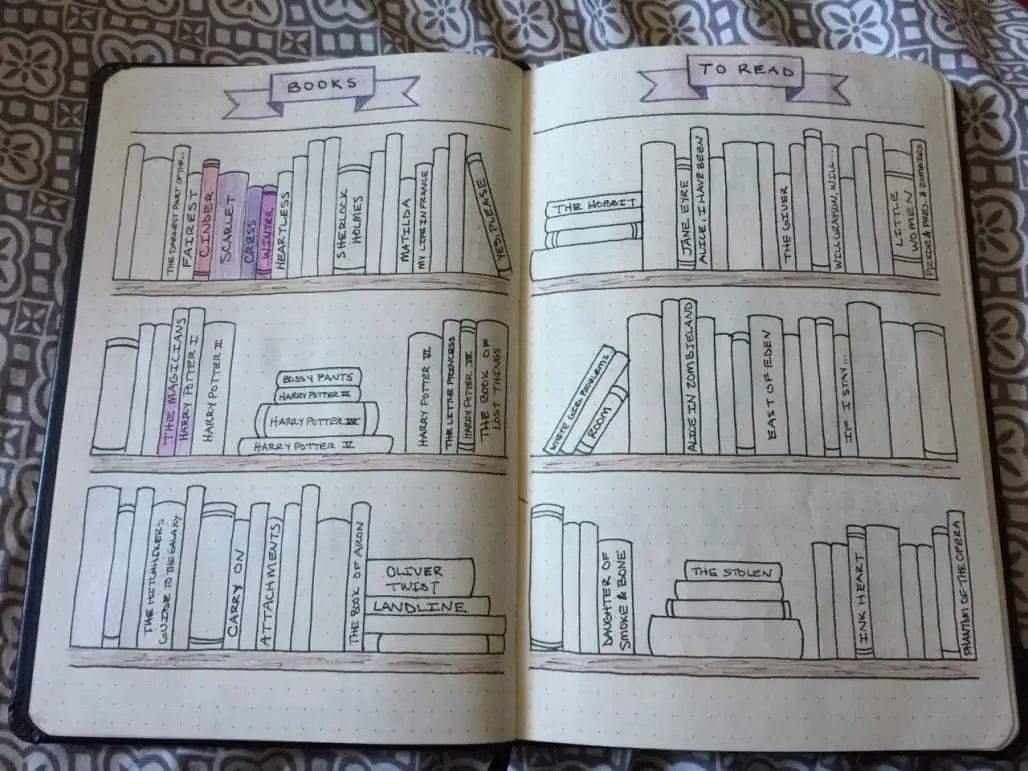 BOOKS
TO READ
THE DARKEST PART OF THE...
FAIREST
CINDER
SCARLET
CRESS
WINTER
HEARTLESS
SHERLOCK
HOLMES
MATILDA
MY LIFE IN FRANCE
YES PLEASE
THE MAGICIANS
HARRY POTTER I
HARRY POTTER II
BOSSY PANTS
HARRY POTTER II
HARRY POTTER
HARRY POTTER V
HARRY POTTER VI
THE LITTLE PRINCESS
HARRY POTTER
THE BOOK OF
LOST THINGS
THE HITCHHIKER'S
GUIDE TO THE GALAXY
CARRY ON
ATTACHMENTS
THE BOOK OF ARON
OLIVER
TWIST
LANDLINE
THE HOBBIT
JANE EYRE
ALICE, I HAVE BEEN
THE GIVER
WILL GRAYSON, WILL...
LITTLE
WOMEN
PRIDE & PREJ. & ZOMBIES
WHITE GIRL PROBLEMS
ROOM
ALICE IN ZOMBIELAND
EAST OF EDEN
IF I STAY...
DAUGHTER OF
SMOKE & BONE
THE STOLEN
INK HEART
PHANTOM OF THE OPERA